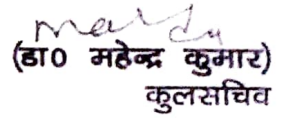 (डा० महेन्द्र कुमार)
कुलसचिव